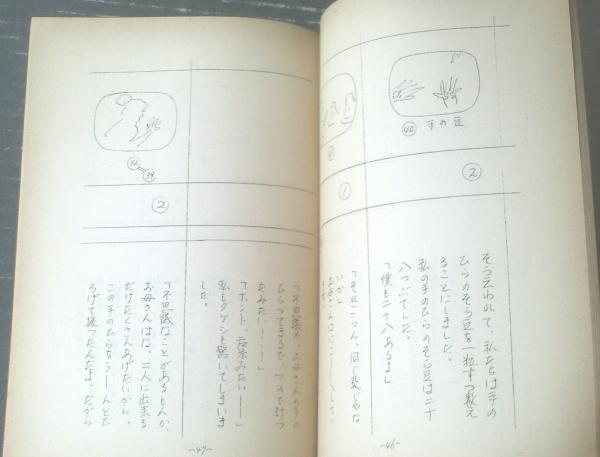 ㊵ 手の豆
②
①
そう云われて、私たちは手の
ひらのそら豆を一粒ずつ数え
ることにしました。
私の手のひらのそら豆は二十
八つぶでした。
「僕も二十八あるよ」
「それごらん、同じ数じゃな
いか」
～46～
②
「不思議ね、お母さんの手の
ひらってまるで、マスで計っ
たみたい───」
「ホント、魔法みたい──」
私もタケシも驚いてしまいま
した。
「不思議なことがあるもんか、
お母さんはな、二人に出来る
だけたくさんあげたいから、
この手のひらをうーんとひ
ろげて掬ったんだよ、だから
～47～